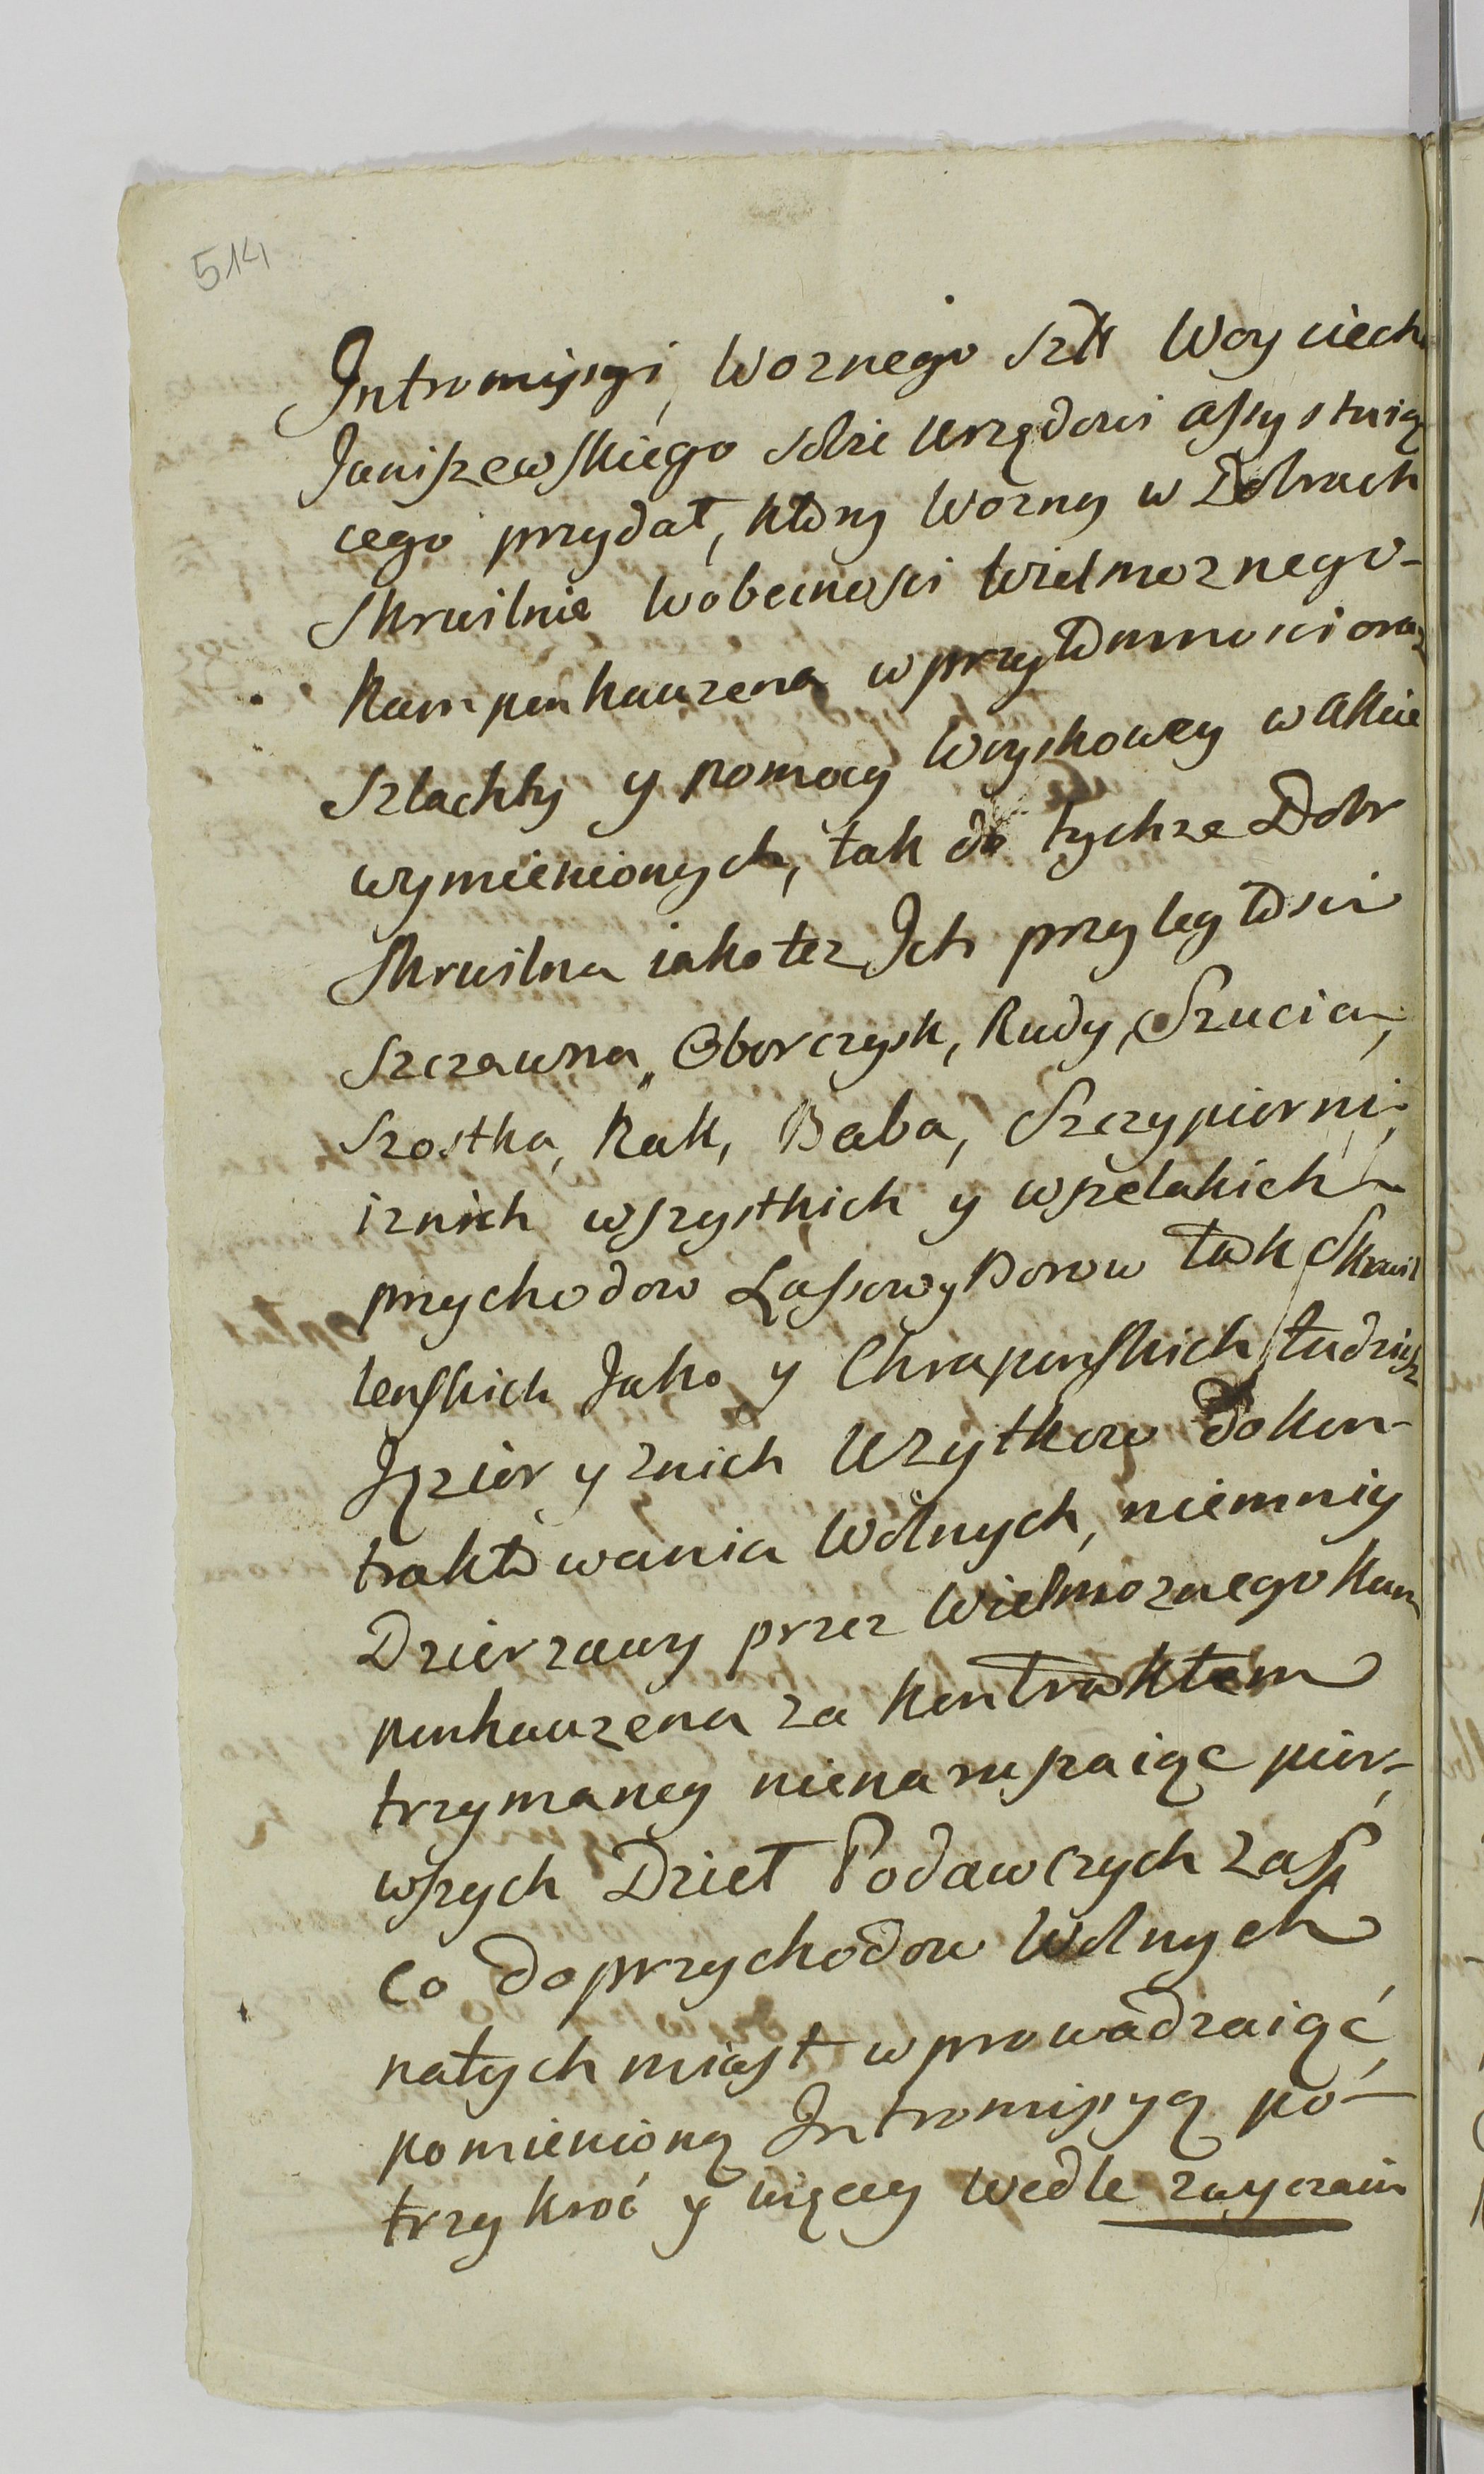 514
Intromissyi, Woznego Szlł Woyciecha
Janiszewskiego sobie Urzędowi assystuią
cego przydał, który Wozny w Dobrach
Skrwilnie Wobecności Wielmoznego
Kampenhauzena w przytomności oraz
Szlachty y pomocy Woyskowey w akcie
wymienionych, tak do tychze Dobr
Skrwilna iakotez Ich przyległości
Szczawna, Oborczysk, Rudy, Szucia,
Szostka, Rak, Baba, Szczypiorni,
iznich wszystkich y wszelakich
przychodow Lassow y Borow tak Skrwil
lenskich Jako y Chraponskich tudziesz
Jezior y znich Uzytkow do kon-
traktowania Wolnych, niemniy
Dzierzawy przez Wielmoznego Kam
penhauzena za kontraktem
trzymaney nienaruszaiąc pier-
wszych Dzieł Podawczych zaś
co do przychodow Wolnych
natychmiast wprowadzaiąc
pomienioną Intromissyą po-
trzykroć y więcey wedle zwyczaiu